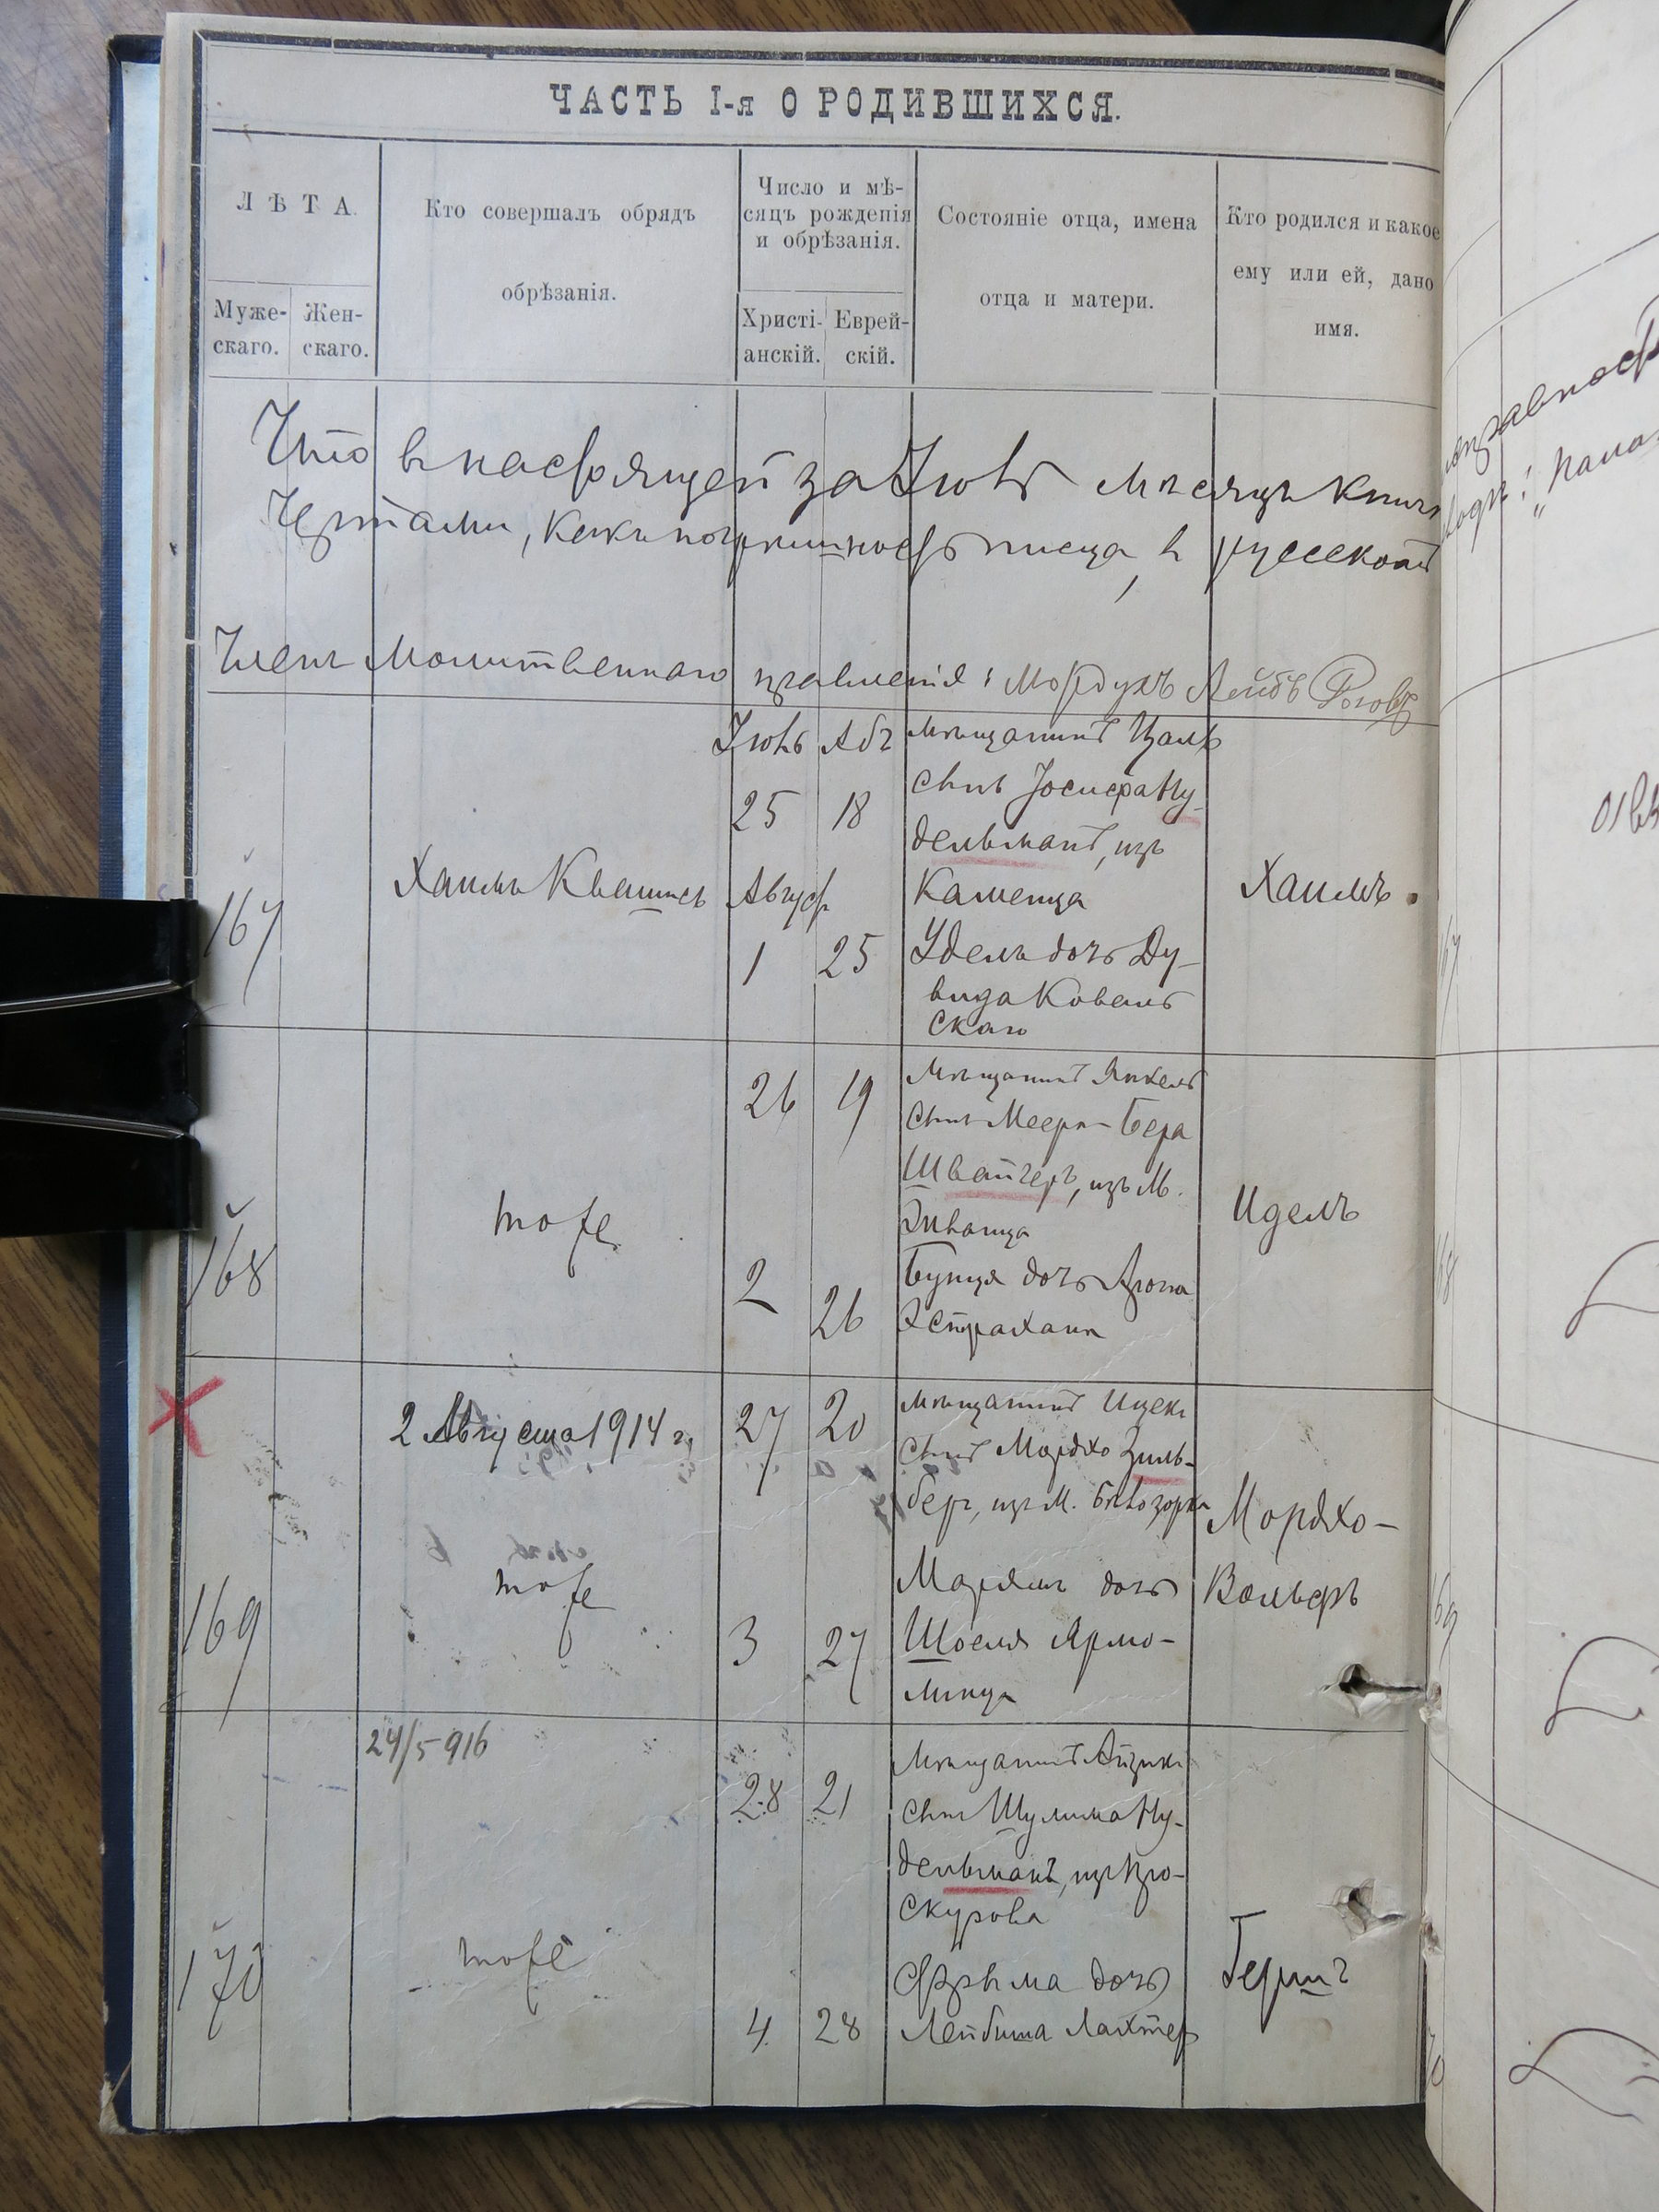 ЧАСТЬ I-я О РОДИВШИХСЯ.
ЛѢТА.
Муже-
скаго.
Жен-
скаго.
Кто совершалъ обрядъ
обрѣзанія.
Число и мѣ-
сяцъ рожденія
и обрѣзанія.
Христі-
анскій.
Еврей-
скій.
Состояніе отца, имена
отца и матери.
Кто родился и какое
ему или ей, дано
имя.
Что въ настоящей за Іюль мѣсяцъ книг
Чертами, какъ погрѣшность писца, в русской
Членъ Молитвеннаго правленія: Мордухъ Лейбъ
167
Хаимъ Квашисъ
Іюль Абъ
25 18
Август
1 25
мѣщанинъ Цаль
сынъ Іосифа Ну-
дельманъ, изъ
Каменца
Удель дочь Ду-
вида Ковель
скаго
Хаимъ.
168
тоже
26 19
2 26
мѣщанинъ Янкель
сынъ Меера-Бера
Швейгеръ, изъ М.
Жванца
Бунця дочь Арона
Эстрахана
Идель
169
2 Августа 1914 г.
тоже
27 20
3 27
мѣщанинъ Ицекъ
сынъ Мордхо Зиль-
бергъ, изъ М. Бѣлозорка
Маріямъ дочь
Шоеля Ярмо-
линца
Мордхо-
Вольфъ
170
24/5 916
тоже
28 21
4 28
мѣщанинъ Айзикъ
сынъ Шулима Ну-
дельманъ, изъ Про-
скурова
Фрыма дочь
Лейбиша Лахтер
Гершъ